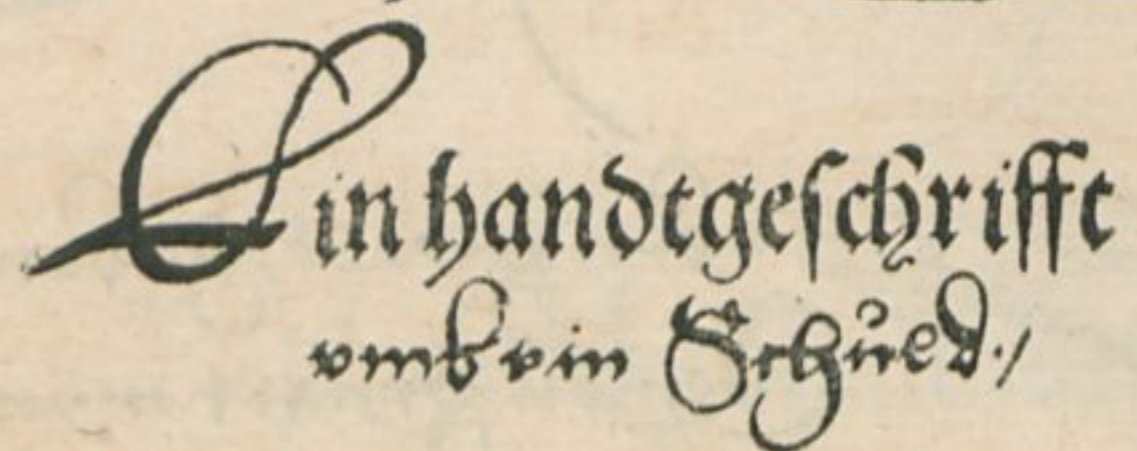 Ein handtgeschrifft
vmb ein Schuld./